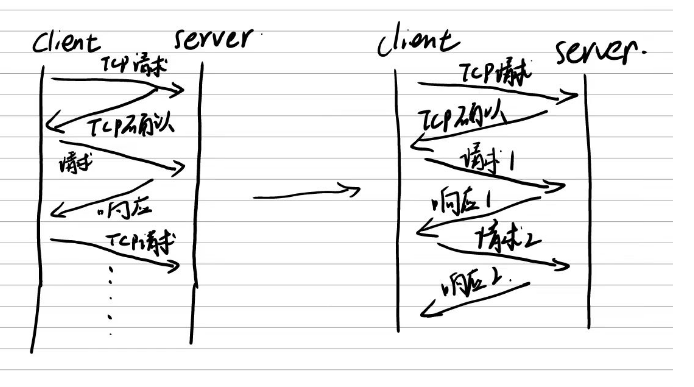 client server.
TCP请求
TCP确认
请求
响应
TCP请求
client server.
TCP请求
TCP确认
请求1
响应1
请求2
响应2.